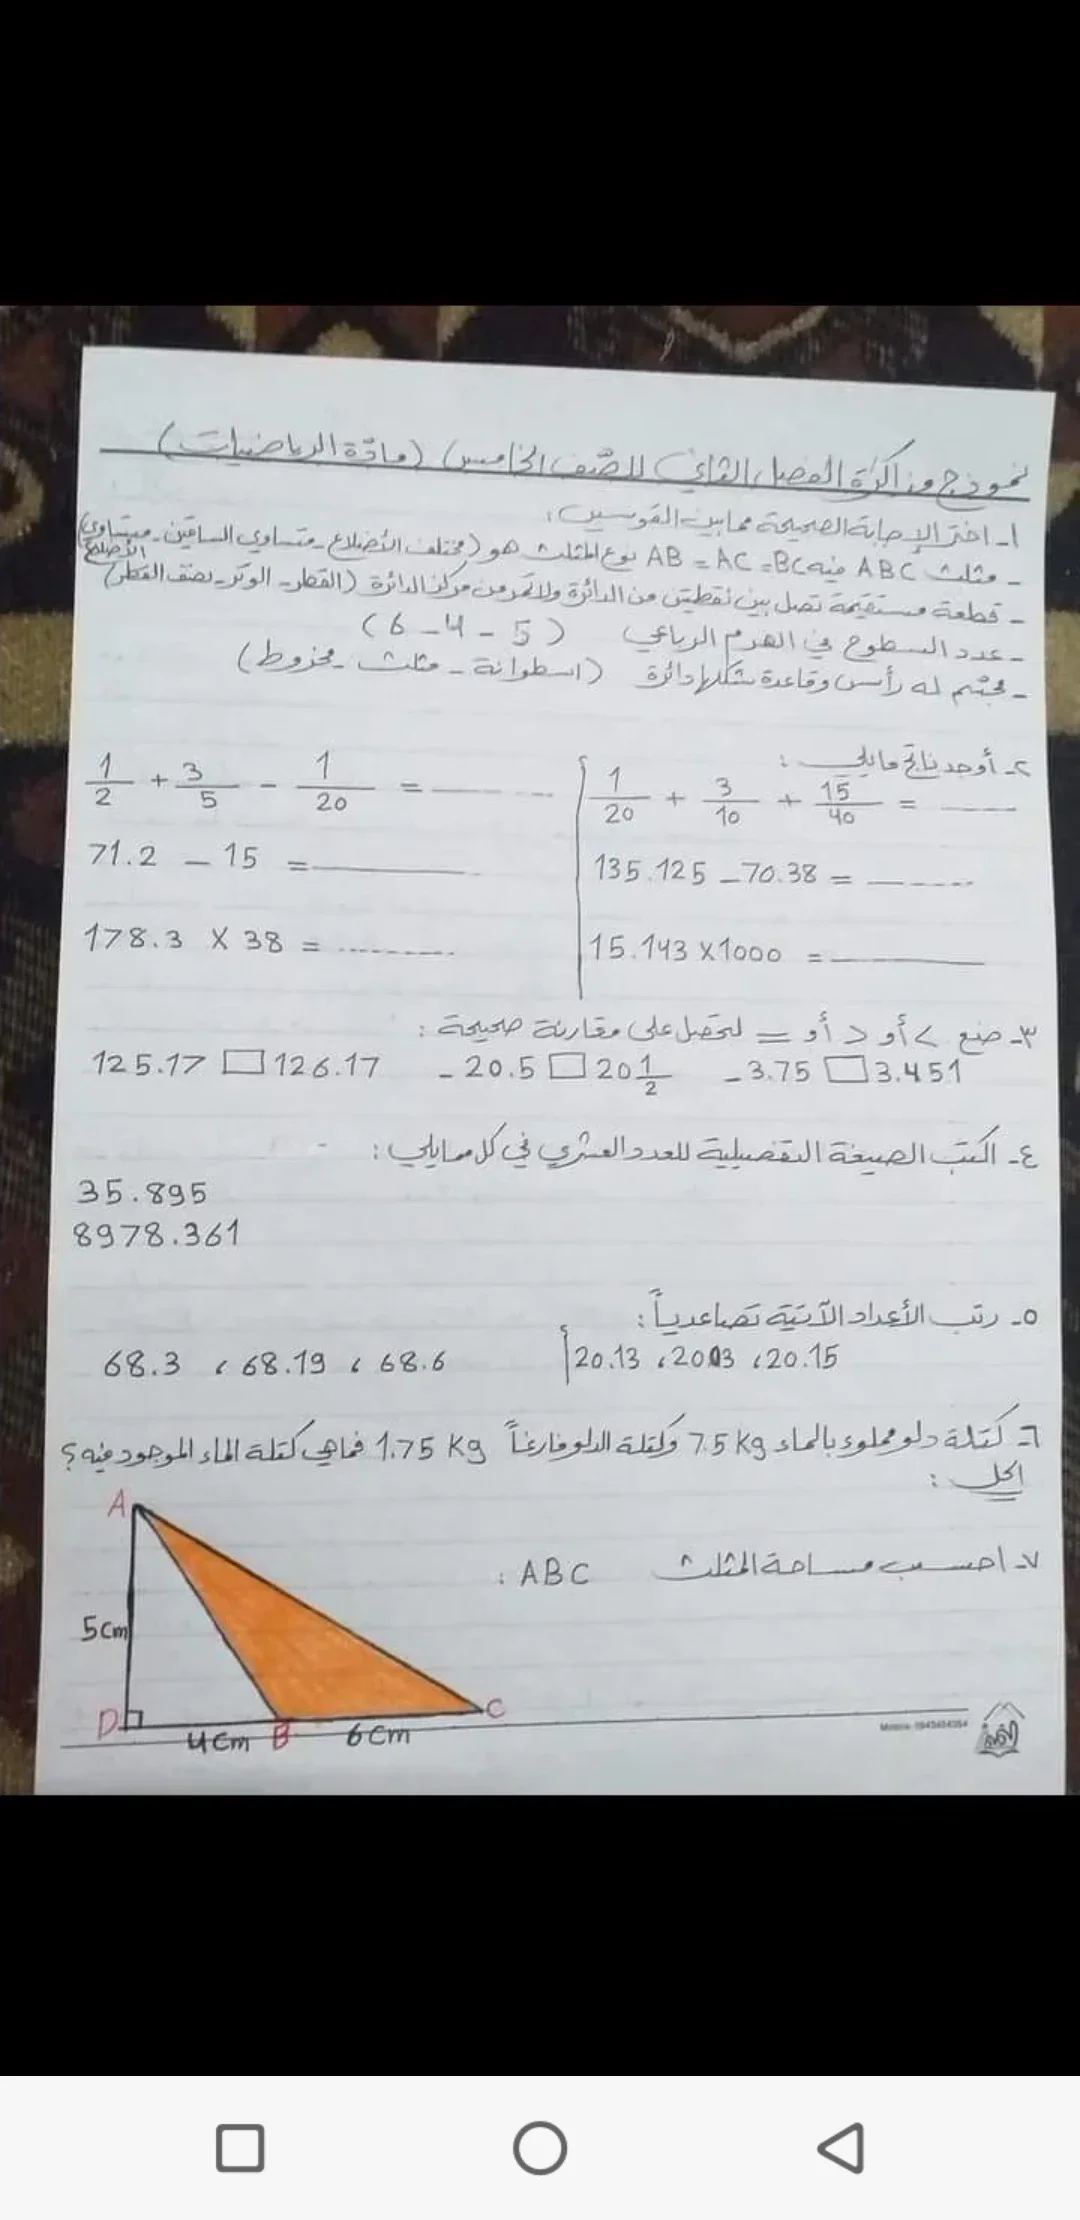 نموذج مذاكرة الفصل الثاني للصّف الخامس (مادّة الرياضيات)
١- اختر الإجابة الصحيحة مما بين القوسين:
- مثلث ABC فيه AB = AC = BC نوع المثلث هو (مختلف الأضلاع - متساوي الساقين - متساوي الأضلاع)
- قطعة مستقيمة تصل بين نقطتين من الدائرة ولا تمر من مركز الدائرة (القطر - الوتر - نصف القطر)
- عدد السطوح في الهرم الرباعي (5 - 4 - 6)
- مجسّم له رأس وقاعدة شكلها دائرة (اسطوانة - مثلث - مخروط)
٢- أوجد ناتج ما يلي:
1/20 + 3/10 + 15/40 = ____
1/2 + 3/5 - 1/20 = ____
135.125 - 70.38 = ____
71.2 - 15 = ____
15.143 X 1000 = ____
178.3 X 38 = ........
٣- ضع > أو < أو = لتحصل على مقارنة صحيحة:
125.17 □ 126.17 - 20.5 □ 20 1/2 - 3.75 □ 3.451
٤- اكتب الصيغة التفصيلية للعدد العشري في كل مما يلي:
35.895
8978.361
٥- رتب الأعداد الآتية تصاعدياً:
20.13 ، 20.03 ، 20.15
68.3 ، 68.19 ، 68.6
٦- كتلة دلو مملوء بالماء 7.5 Kg وكتلة الدلو فارغاً 1.75 Kg فما هي كتلة الماء الموجود فيه؟
الحل:
٧- احسب مساحة المثلث ABC:
A
5cm
D
4cm
B
6cm
C